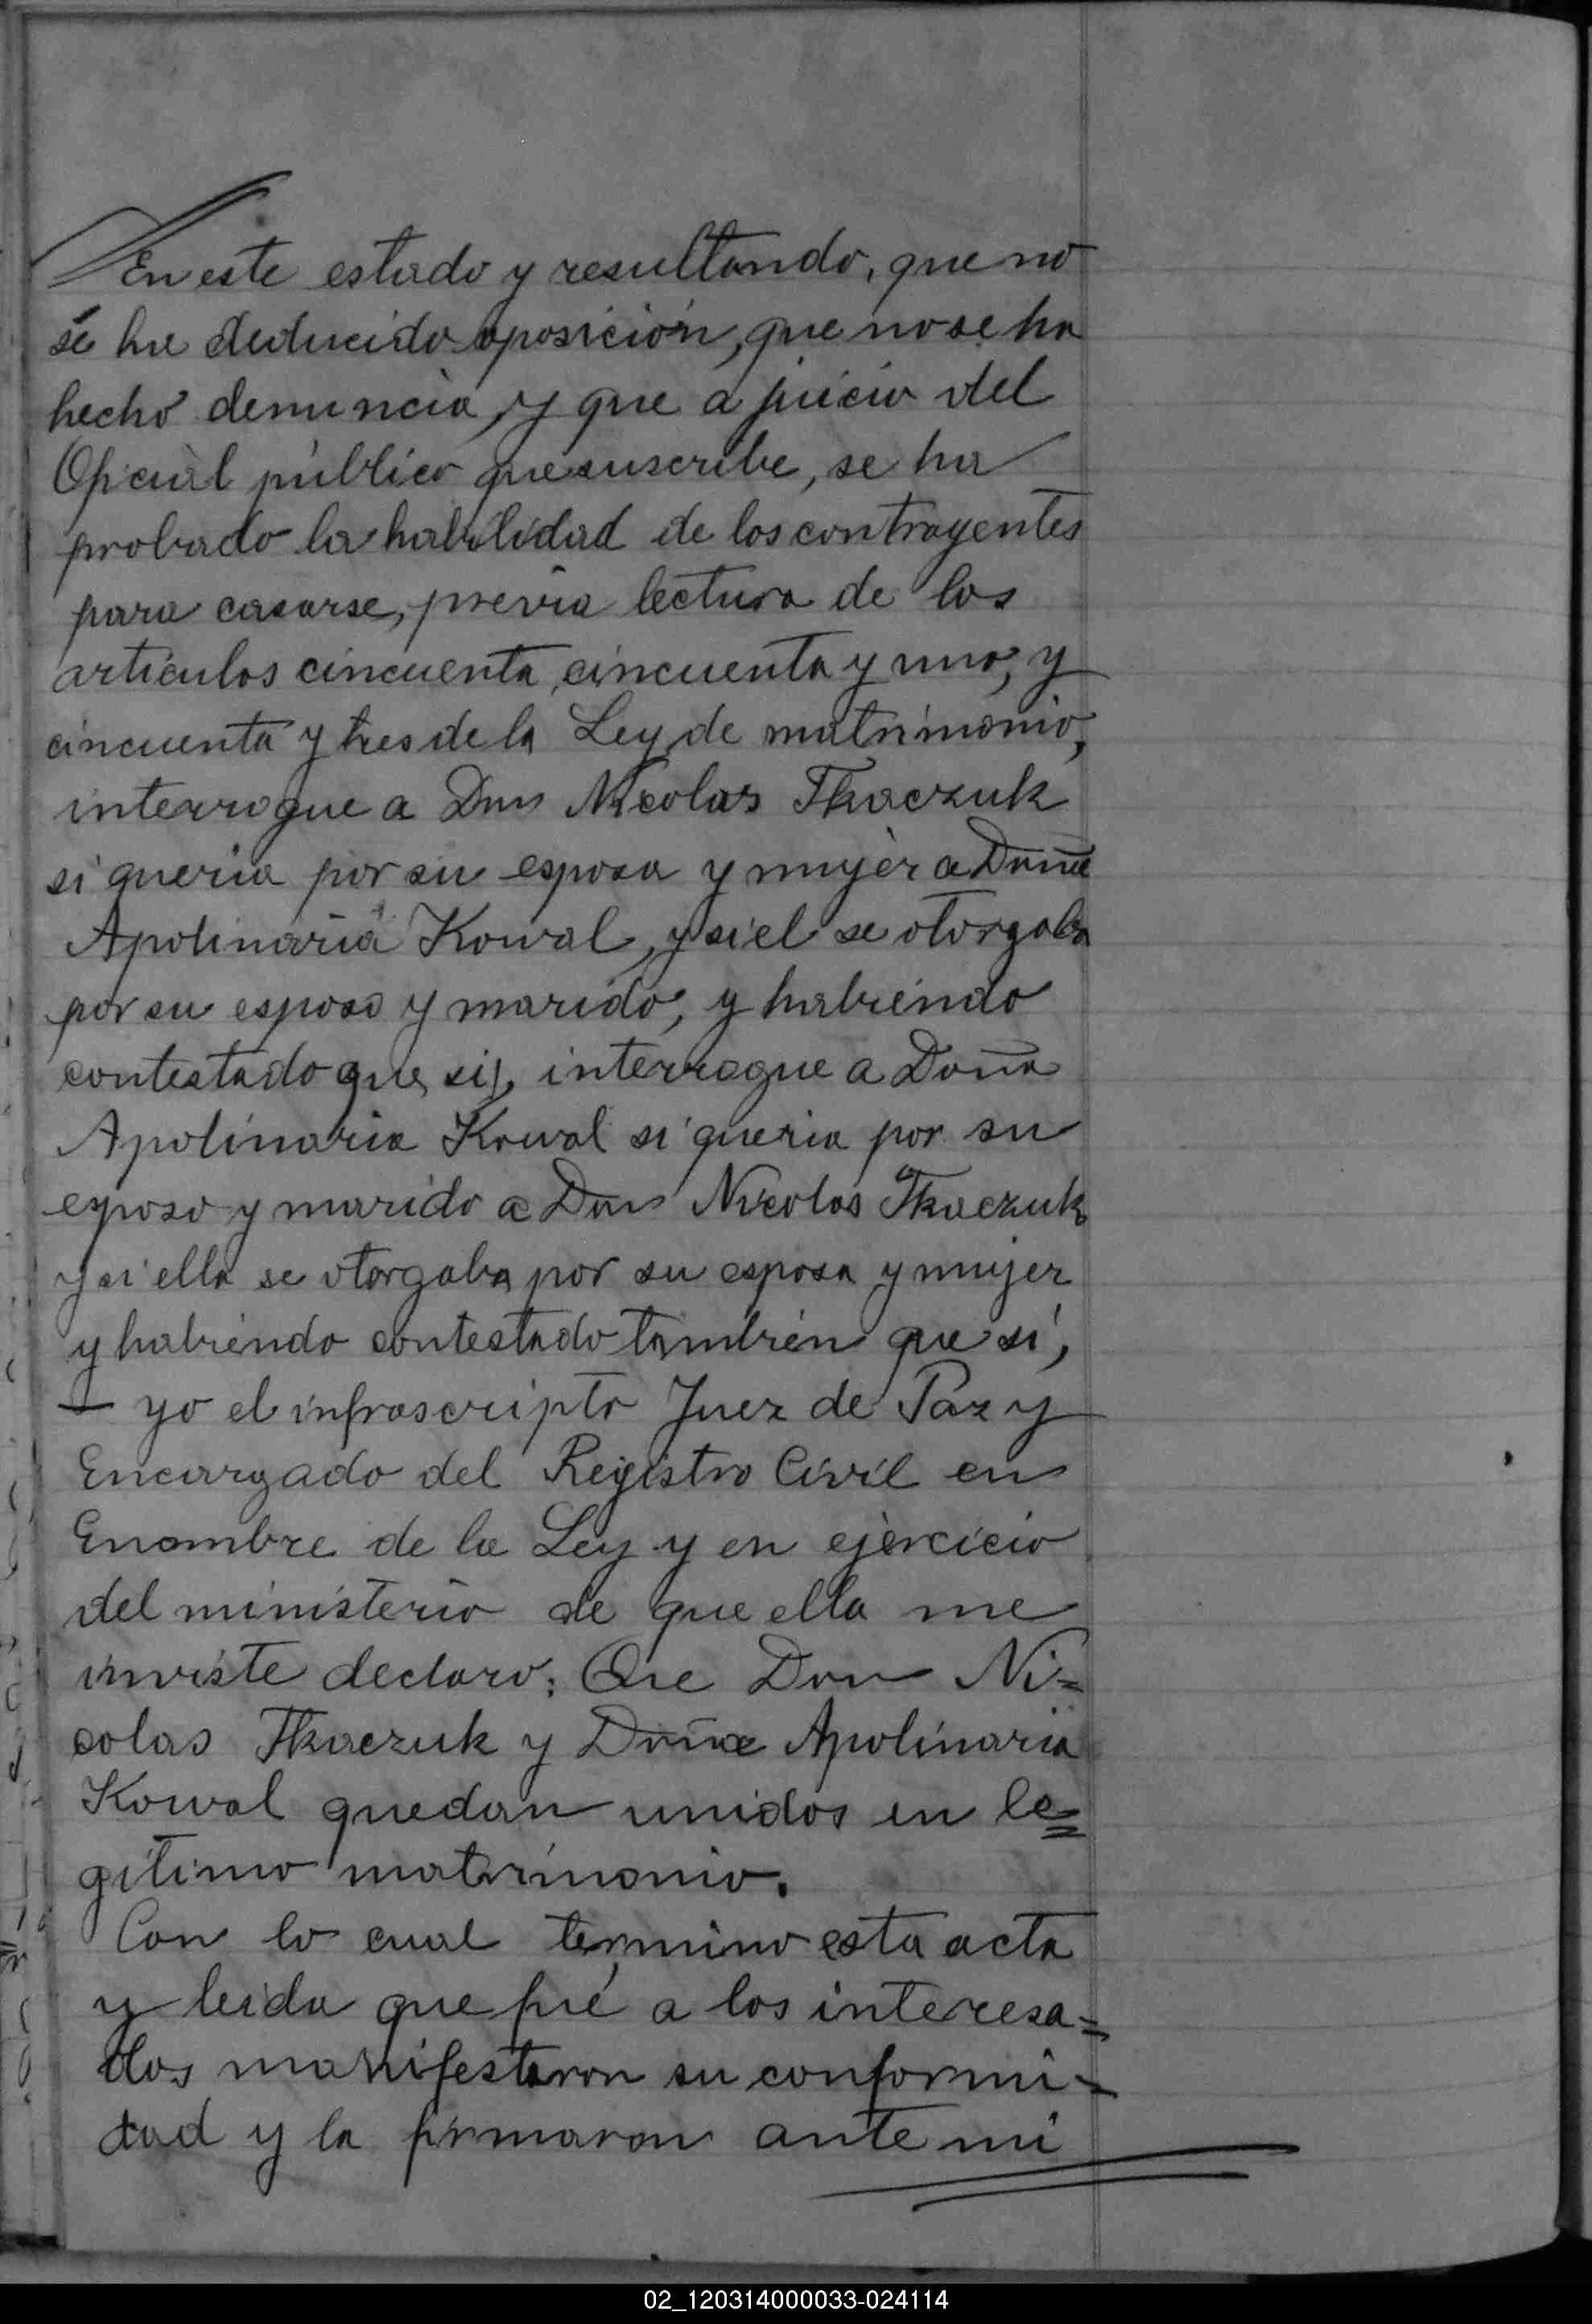 En este estado y resultando, que no
se ha deducido oposición, que no se ha
hecho denuncia, y que a juicio del
Oficial público que suscribe, se ha
probado la habilidad de los contrayentes
para casarse, previa lectura de los
artículos cincuenta, cincuenta y uno, y
cincuenta y tres de la Ley de matrimonio,
interrogue a Don Nicolas Tkaczuk
si queria por su esposa y mujer a Doña
Apolinaria Kowal, y si el se otorgaba
por su esposo y marido, y habiendo
contestado que si, interrogue a Doña
Apolinaria Kowal si queria por su
esposo y marido a Don Nicolas Tkaczuk
y si ella se otorgaba por su esposa y mujer
y habiendo contestado también que sí,
— yo el infrascripto Juez de Paz y
Encargado del Registro Civil en
Enombre de la Ley y en ejercicio
del ministerio de que ella me
inviste declaro: Que Don Ni=
colas Tkaczuk y Doña Apolinaria
Kowal quedan unidos en le=
gitimo matrimonio.
Con lo cual termino esta acta
y leida que fué a los interesa=
dos manifestaron su conformi=
dad y la firmaron ante mi
02_120314000033-024114